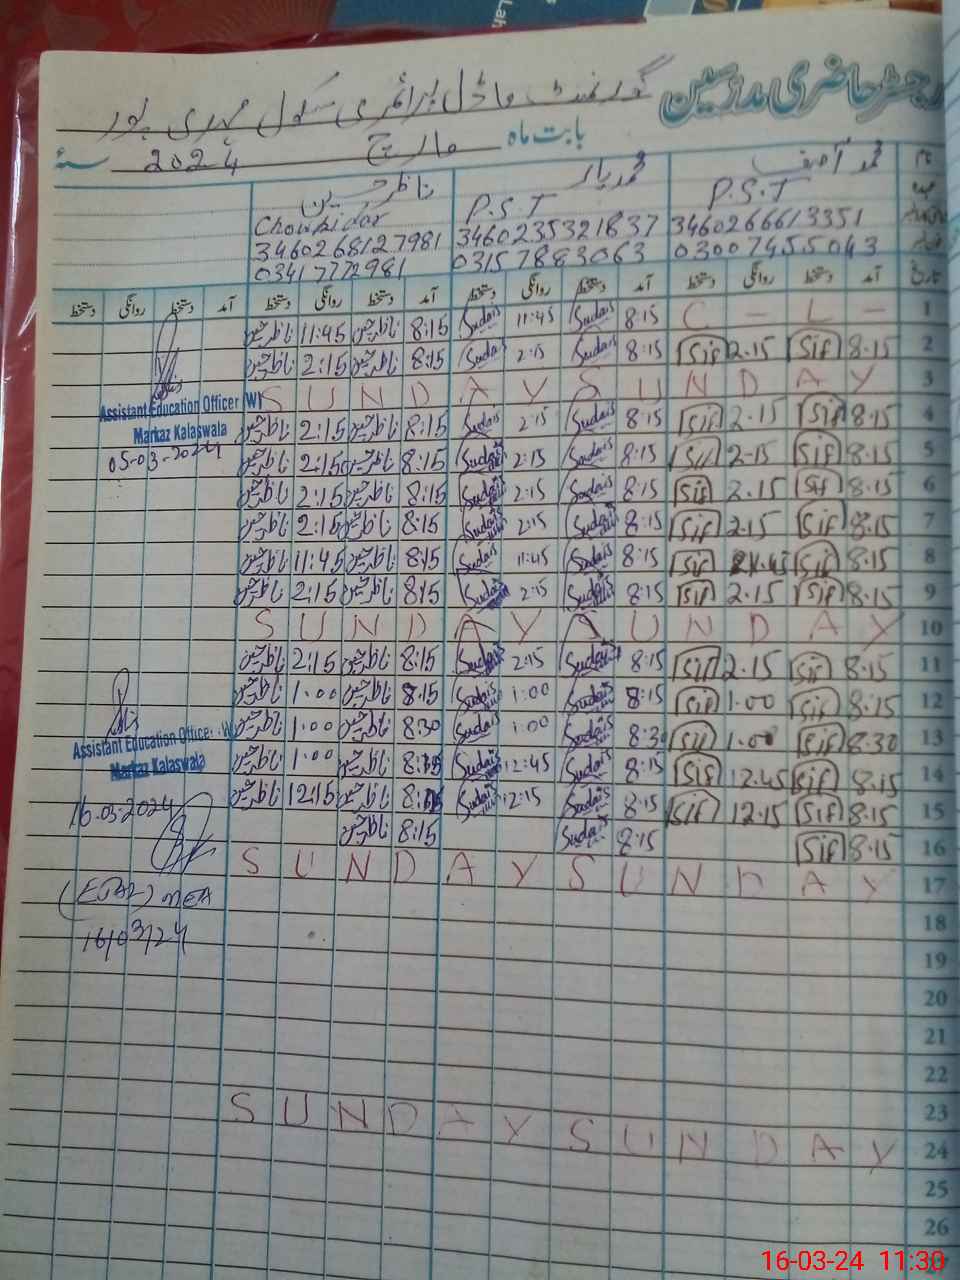 رجسٹر حاضری مدرسین
گورنمنٹ ماڈل پرائمری سکول مہدی پور
بابت ماہ مارچ 2024
محمد آصف
ناظر حسین
P.S.T P.S.T Chowkidar
3460266613351 3460235321837 3460268127981
03007455043 03157883063 03417772981
تاریخ آمد دستخط روانگی دستخط آمد دستخط روانگی دستخط آمد دستخط روانگی دستخط آمد دستخط روانگی دستخط
1 C - L - 8:15 Sudais 11:45 Sudais 8:15 ناظر حسین 11:45 ناظر حسین
2 8.15 Sif 2.15 Sif 8:15 Sudais 2:15 Sudais 8:15 ناظر حسین 2:15 ناظر حسین
3 S U N D A Y S U N D A Y
4 8.15 Sif 2.15 Sif 8:15 Sudais 2:15 Sudais 8:15 ناظر حسین 2:15 ناظر حسین
5 8.15 Sif 2.15 Sif 8:15 Sudais 2:15 Sudais 8:15 ناظر حسین 2:15 ناظر حسین
6 8.15 Sif 2.15 Sif 8:15 Sudais 2:15 Sudais 8:15 ناظر حسین 2:15 ناظر حسین
7 8.15 Sif 2.15 Sif 8:15 Sudais 2:15 Sudais 8:15 ناظر حسین 2:15 ناظر حسین
8 8.15 Sif Sif 8:15 Sudais 11:45 Sudais 8:15 ناظر حسین 11:45 ناظر حسین
9 8.15 Sif 2.15 Sif 8:15 Sudais 2:15 Sudais 8:15 ناظر حسین 2:15 ناظر حسین
10 S U N D A Y S U N D A Y
11 8.15 Sif 2.15 Sif 8:15 Sudais 2:15 Sudais 8:15 ناظر حسین 2:15 ناظر حسین
12 8.15 Sif 1.00 Sif 8:15 Sudais 1:00 Sudais 8:15 ناظر حسین 1:00 ناظر حسین
13 8.30 Sif 1.00 Sif 8:30 Sudais 1:00 Sudais 8:30 ناظر حسین 1:00 ناظر حسین
14 8.15 Sif 12.45 Sif 8:15 Sudais 12:45 Sudais 8:15 ناظر حسین 1:00 ناظر حسین
15 8.15 Sif 12.15 Sif 8:15 Sudais 12:15 Sudais 8:15 ناظر حسین 12:15 ناظر حسین
16 8.15 Sif 8:15 Sudais 8:15 ناظر حسین
17 S U N D A Y S U N D A Y
18
19
20
21
22
23
24 S U N D A Y S U N D A Y
25
26
27
Assistant Education Officer (W)
Markaz Kalaswala
05-03-2024
Assistant Education Officer (W)
Markaz Kalaswala
16-03-2024
MEA
16/03/24
16-03-24 11:30